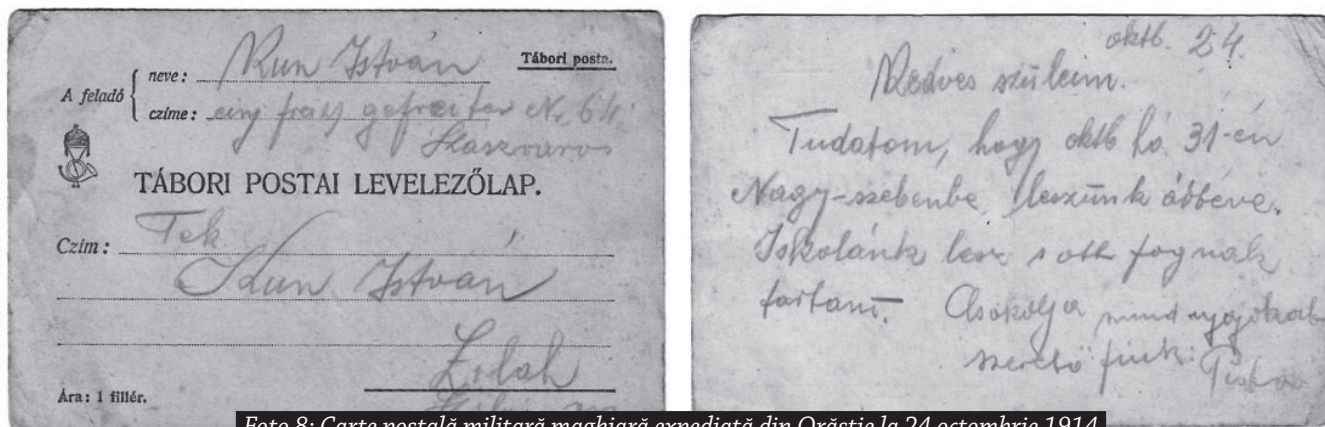 Tábori posta.
A feladó
neve: Kun István
czíme: einj freiw gefreiter Nr. 64.
Szászváros
TÁBORI POSTAI LEVELEZŐLAP.
Czím: Tek
Kun István
Zilah
Ára: 1 fillér.
oktb. 24.
Kedves szüleim.
Tudatom, hogy oktb hó 31-én
Nagy-szebenbe leszünk áttéve.
Iskolánk lesz s ott fognak
tartani. Csókolja mindnyájokat
szerető fiuk: Pista
Foto 8: Carte poștală militară maghiară expediată din Orăștie la 24 octombrie 1914